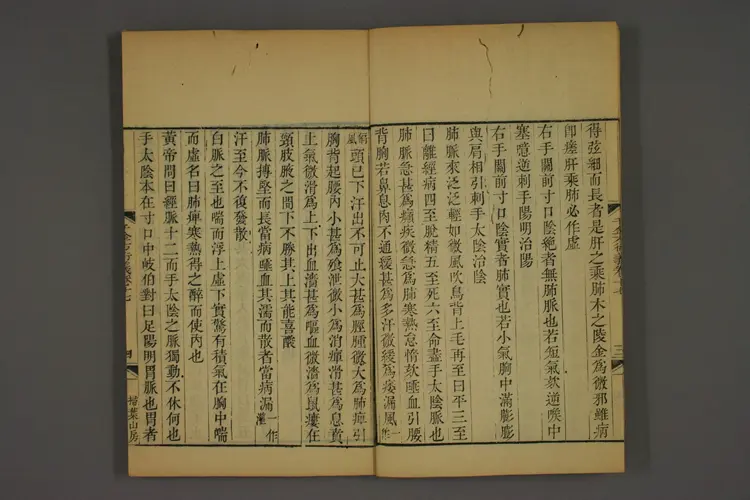 得弦細而長者是肝之乘肺木之陵金爲微邪雖病
卽瘥肝乘肺必作虛
右手關前寸口陰絕者無肺脈也若短氣欬逆喉中
塞噫逆刺手陽明治陽
右手關前寸口陰實者肺實也若少氣胸中滿膨膨
與肩相引刺手太陰治陰
肺脈來泛泛輕如微風吹鳥背上毛再至曰平三至
曰離經病四至脫精五至死六至命盡手太陰脈也
肺脈急甚爲癲疾微急爲肺寒熱怠惰欬唾血引腰
背胸若鼻息肉不通緩甚爲多汗微緩爲痿漏風一作
偏風頭已下汗出不可止大甚爲脛腫微大爲肺痺引
胸背起腰內小甚爲飱泄微小爲消癉滑甚爲息賁
上氣微滑爲上下出血濇甚爲嘔血微濇爲鼠瘻在
頸肢腋之間下不勝其上其能喜酸
肺脈搏堅而長當病唾血其濡而散者當病漏一作灌
汗至今不復發散
白脈之至也喘而浮上虛下實驚有積氣在胸中喘
而虛名曰肺痺寒熱得之醉而使內也
黃帝問曰經脈十二而手太陰之脈獨動不休何也
手太陰本在寸口中岐伯對曰足陽明胃脈也胃者
四
掃葉山房